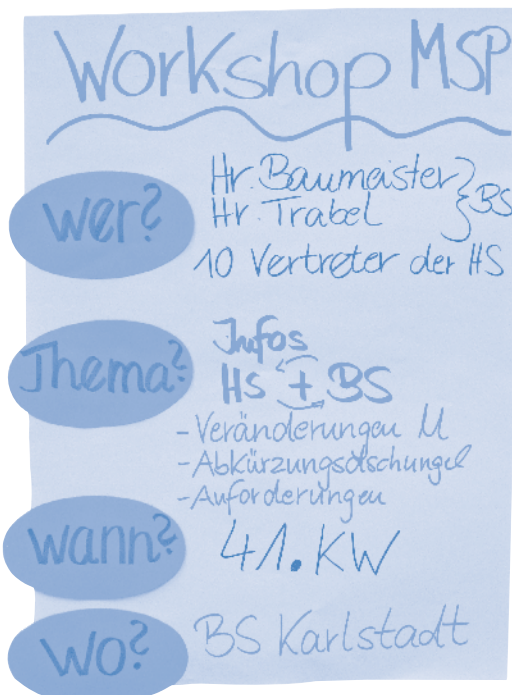 Workshop MSP
Wer?
Hr. Baumeister } BS
Hr. Trabel
10 Vertreter der HS
Thema?
Infos
HS + BS
- Veränderungen M
- Abkürzungsdschungel
- Anforderungen
Wann?
41. KW
Wo?
BS Karlstadt